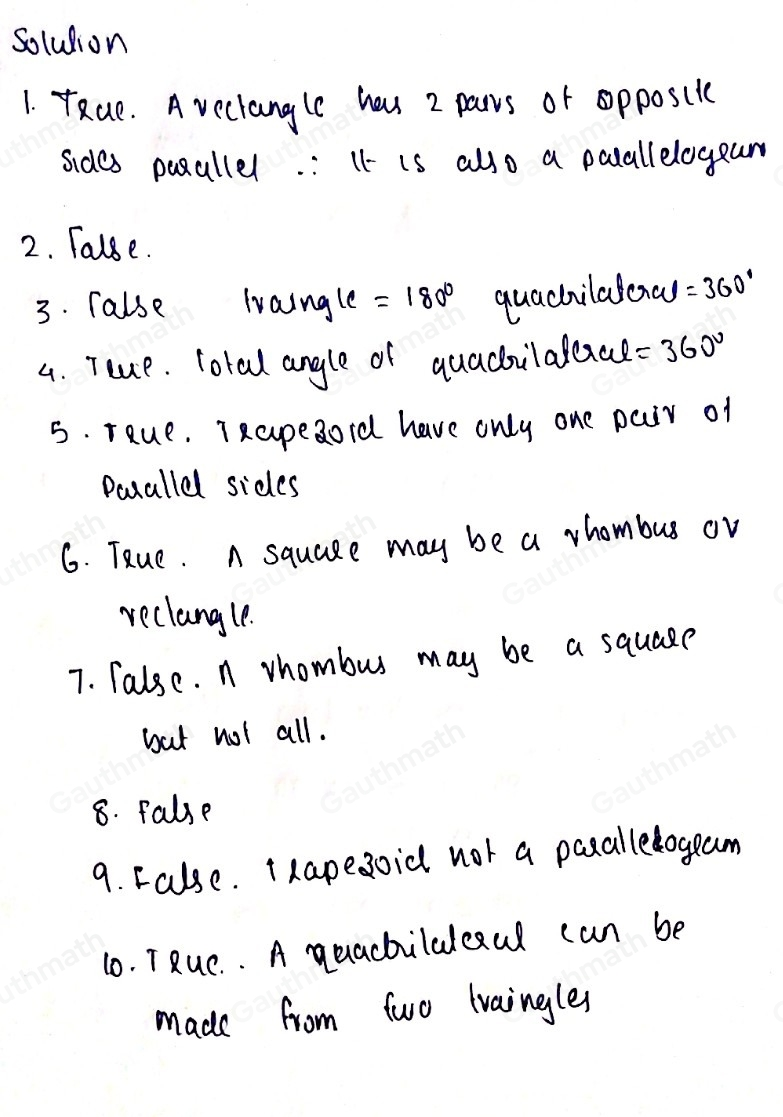 Solution
1. True. A rectangle has 2 pairs of opposite
sides parallel ∴ It is also a parallelogram
2. False.
3. False traingle = 180° quadrilateral = 360°
4. True. Total angle of quadrilateral = 360°
5. True. Trapezoid have only one pair of
parallel sides
6. True. A square may be a rhombus or
rectangle.
7. False. A rhombus may be a square
but not all.
8. False
9. False. trapezoid not a parallelogram
10. True. . A quadrilateral can be
made from two traingles
Gauthmath